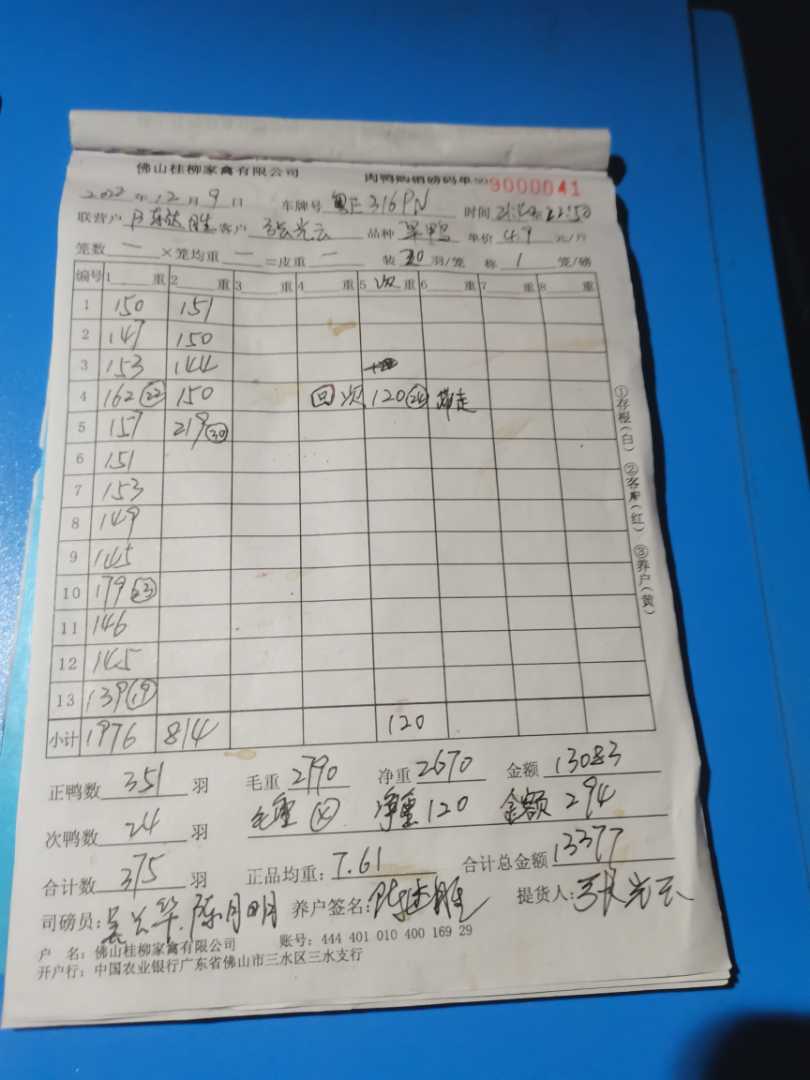 佛山桂柳家禽有限公司 肉鸭购销磅码单 NO 9000041
2022 年 12 月 9 日 车牌号 粤E316PN 时间
联营户 胜 客户 张光云 品种 单价 4.9 元/斤
笼数 一 ×笼均重 一 =皮重 一 装 20 羽/笼 称 1 笼/磅
编号 1 重 2 重 3 重 4 重 5 次 重 6 重 7 重 8 重
1 150 151
2 147 150
3 153 144
4 162 (22) 150 回次 120 (24) 走
5 157 219 (30)
6 151
7 153
8 149
9 145
10 179 (23)
11 146
12 145
13 139 (19)
小计 1976 814 120
正鸭数 351 羽 毛重 2790 净重 2670 金额 13083
次鸭数 24 羽 毛重 次 净重 120 金额 294
合计数 375 羽 正品均重: 7.61 合计总金额 13377
司磅员: 陈月明 养户签名: 胜 提货人: 张光云
户 名: 佛山桂柳家禽有限公司 账号: 444 401 010 400 169 29
开户行: 中国农业银行广东省佛山市三水区三水支行
①存根(白) ②客户(红) ③养户(黄)